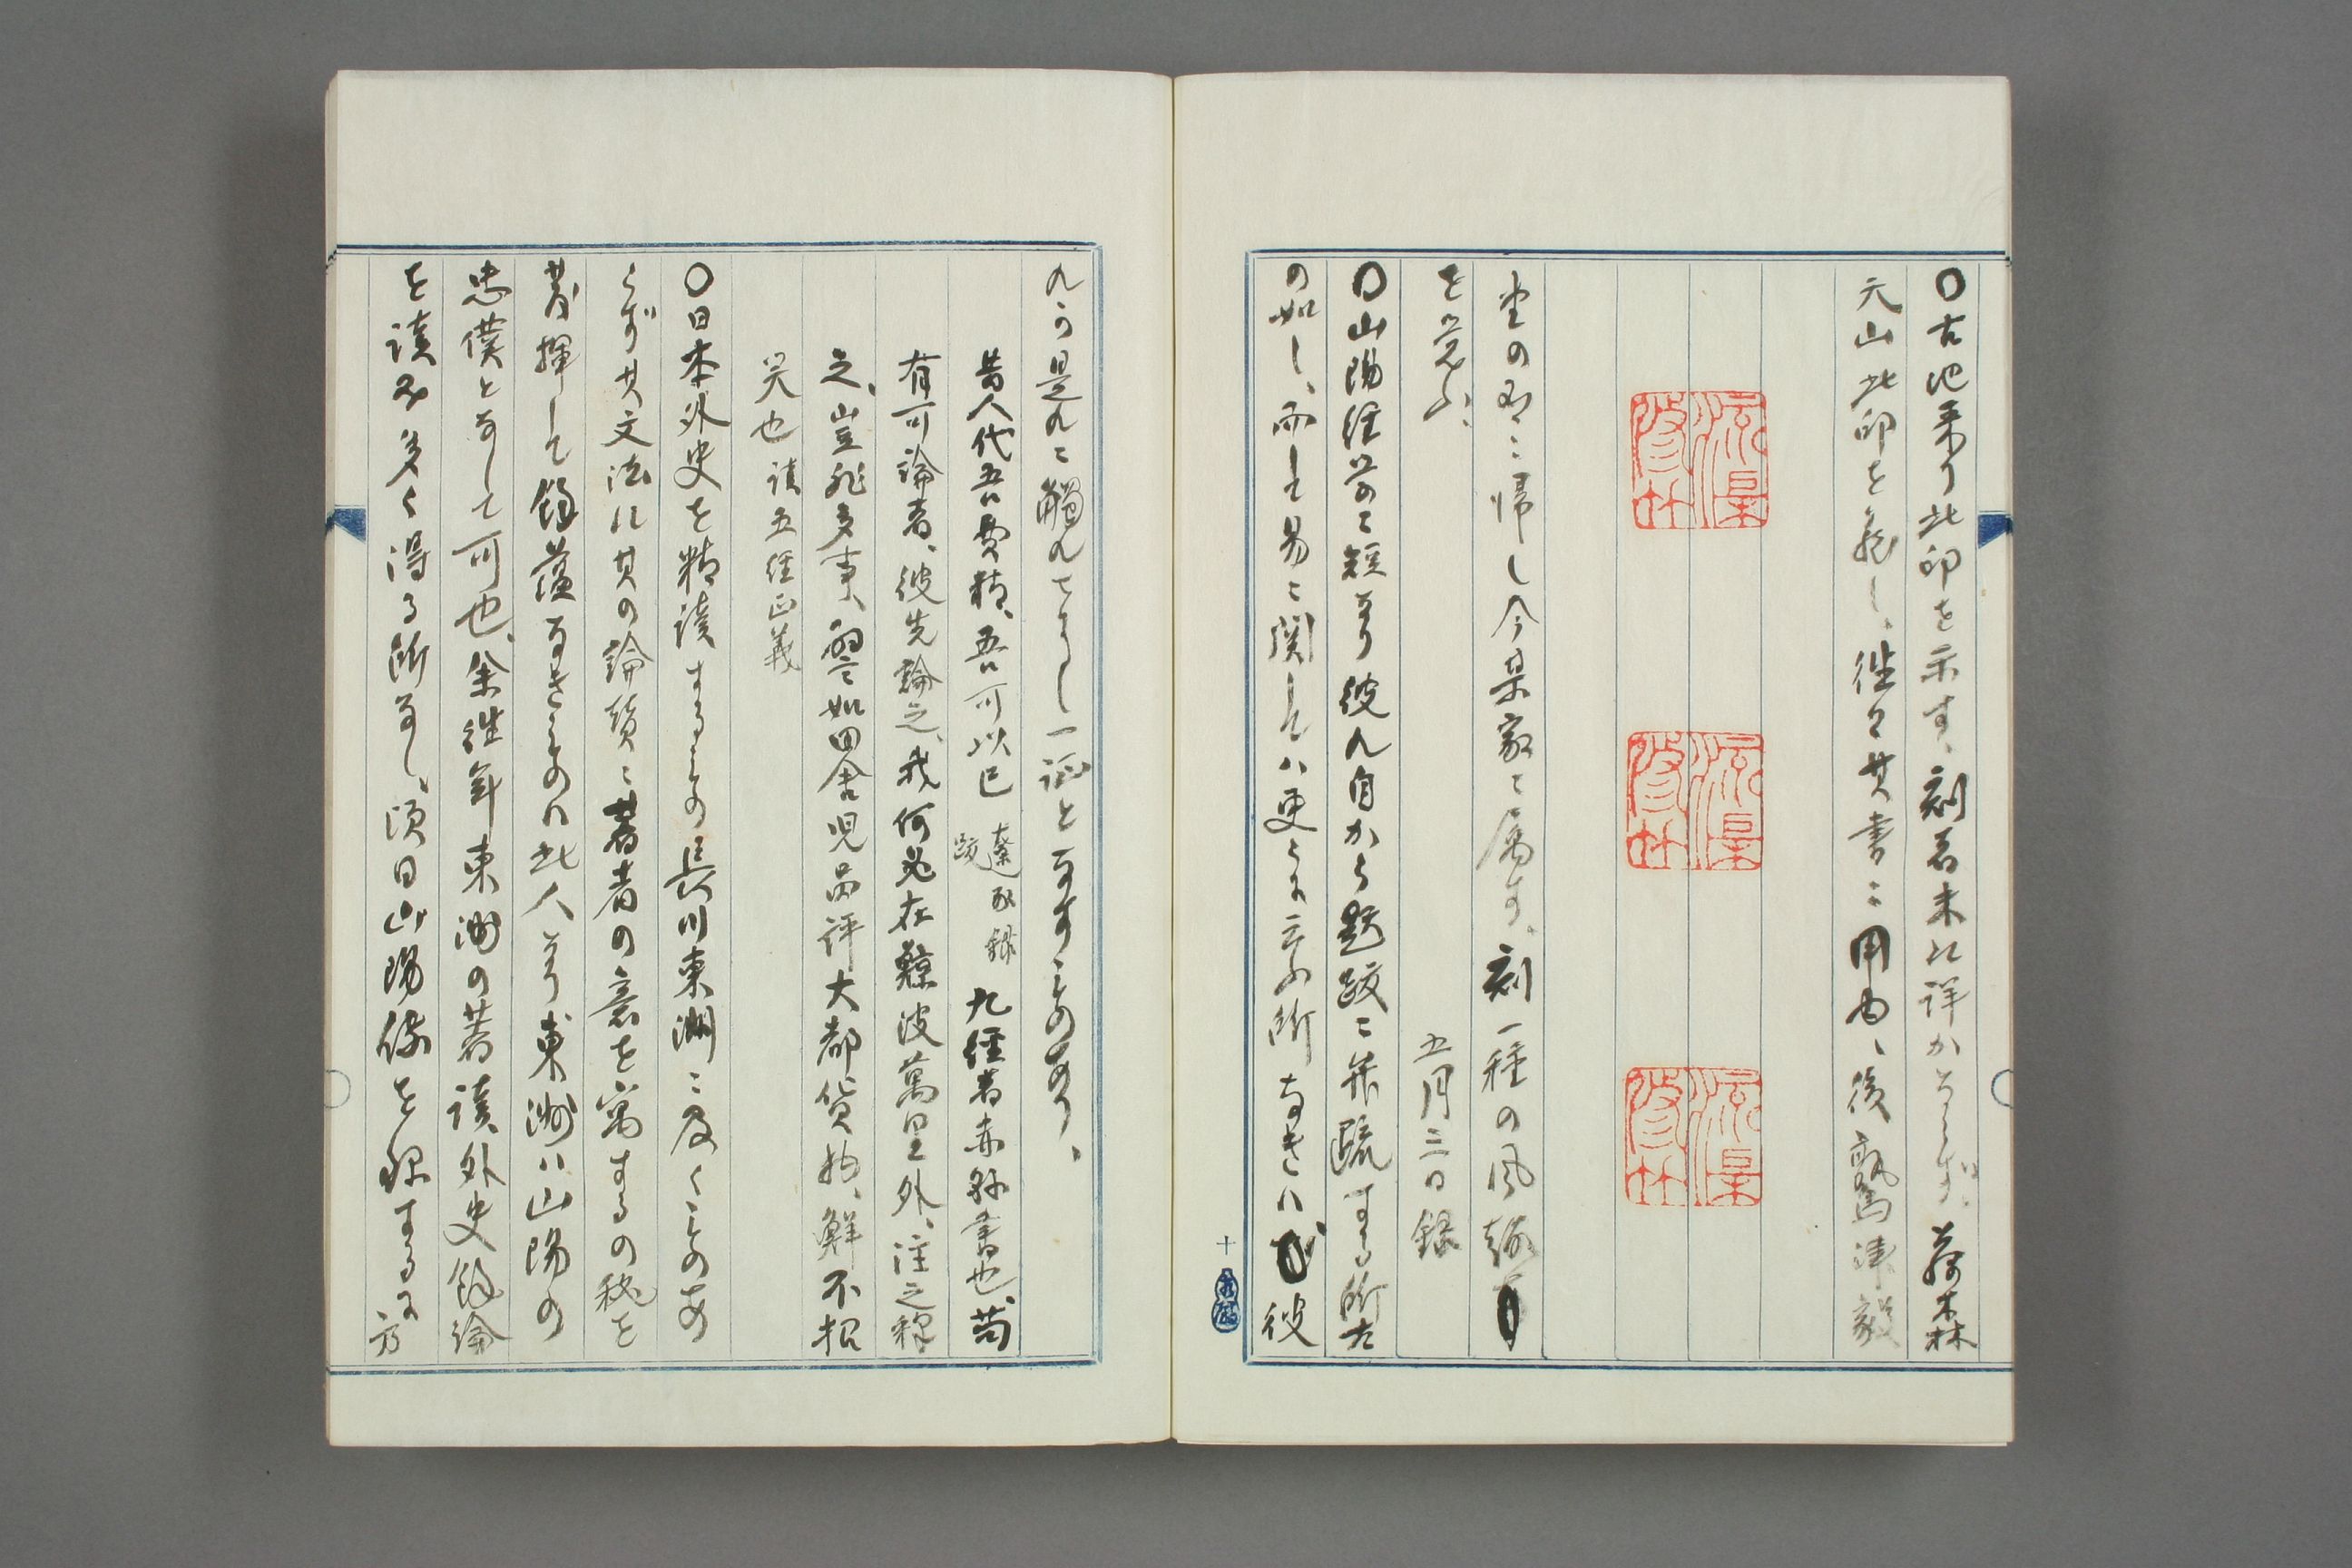 〇古池来り此印を示す、刻者未だ詳かならず、藤森
天山此印を蔵し、往々其書に用ゆ、後鷲津毅
流星
堂の有に帰し今某家に属す、刻一種の風韻
を覚ふ、
五月三日録
〇山陽経学に短なり彼れ自から題跋に弁疏する所左
の如し、而して易に関しては更らに云ふ所なきは彼
十
れが是れに触れてなし一証となすものあり、
昔人代吾費精、吾可以已 跋 九経者赤縣書也、苟
有可論者、彼先論之、我何必在鯨波萬里外、注之釋
之、豈非多事、譬如田舎児品評大都貨物、鮮不招
笑也 読五経正義
〇日本外史を精読するもの長川東洲に及くものあ
らず其文法に其の論賛に著者の意を寓するの秘を
発揮して餘蘊なきものは此人なり東洲は山陽の
忠僕となして可也、余往年東洲の著読外史餘論
を読み多く得る所なし、頃日山陽傳を綴するに方